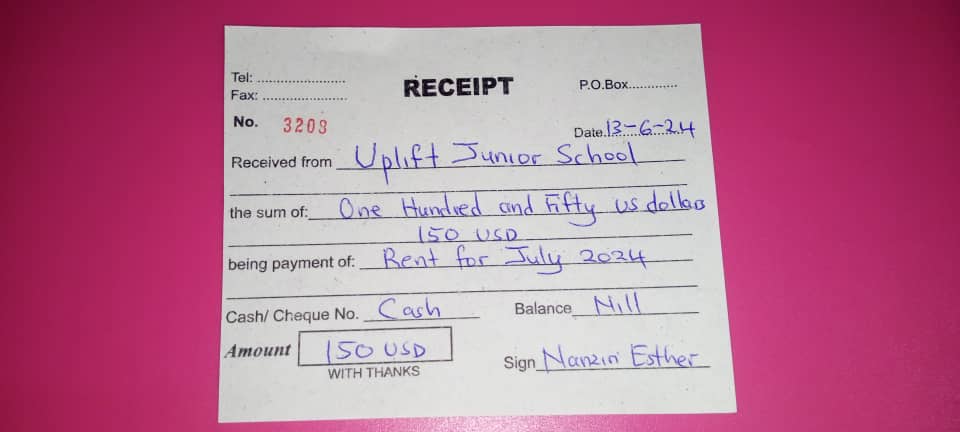 Tel: ........................
RECEIPT
P.O.Box.............
Fax: ........................
No. 3209
Date.13-6-24
Received from Uplift Junior School
the sum of: One Hundred and Fifty US dollars
150 USD
being payment of: Rent for July 2024
Cash/ Cheque No. Cash Balance Nill
Amount 150 USD
Sign Nanziri Esther
WITH THANKS